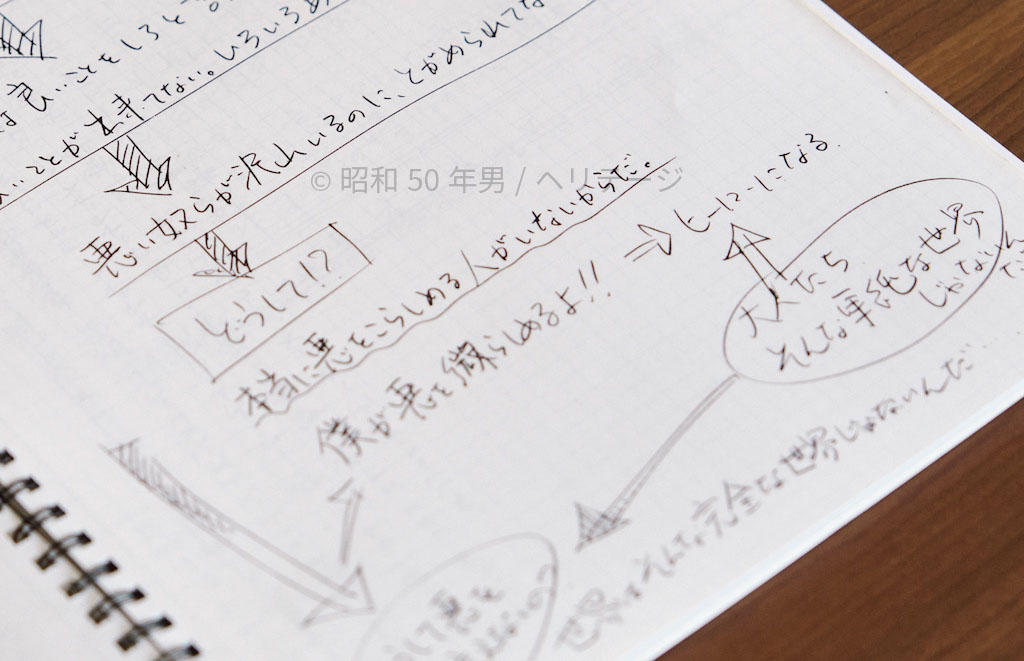 良いことをしろと
いことが出来てない。いろいろ
悪い奴らが沢山いるのに、とがめられてな
© 昭和 50 年男 / ヘリテージ
どうして!?
本当に悪をこらしめる人がいないからだ。
僕が悪を微らしめるよ!! ⇒ ヒーローになる
大人たち
そんな単純な世界
じゃないんだ
世界はそんな完全な世界じゃないんだ…
して悪を
ないの